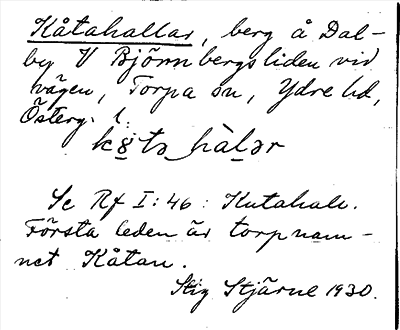 Kåtahallar, berg å Dal-
by V Björnbergsliden vid
vägen, Torpa sn, Ydre hd,
Österg. l.
hàl̠ər
Se Rf I:46: Kutahall.
Första leden är torpnam-
net Kåtan.
Stig Stjärne 1930.